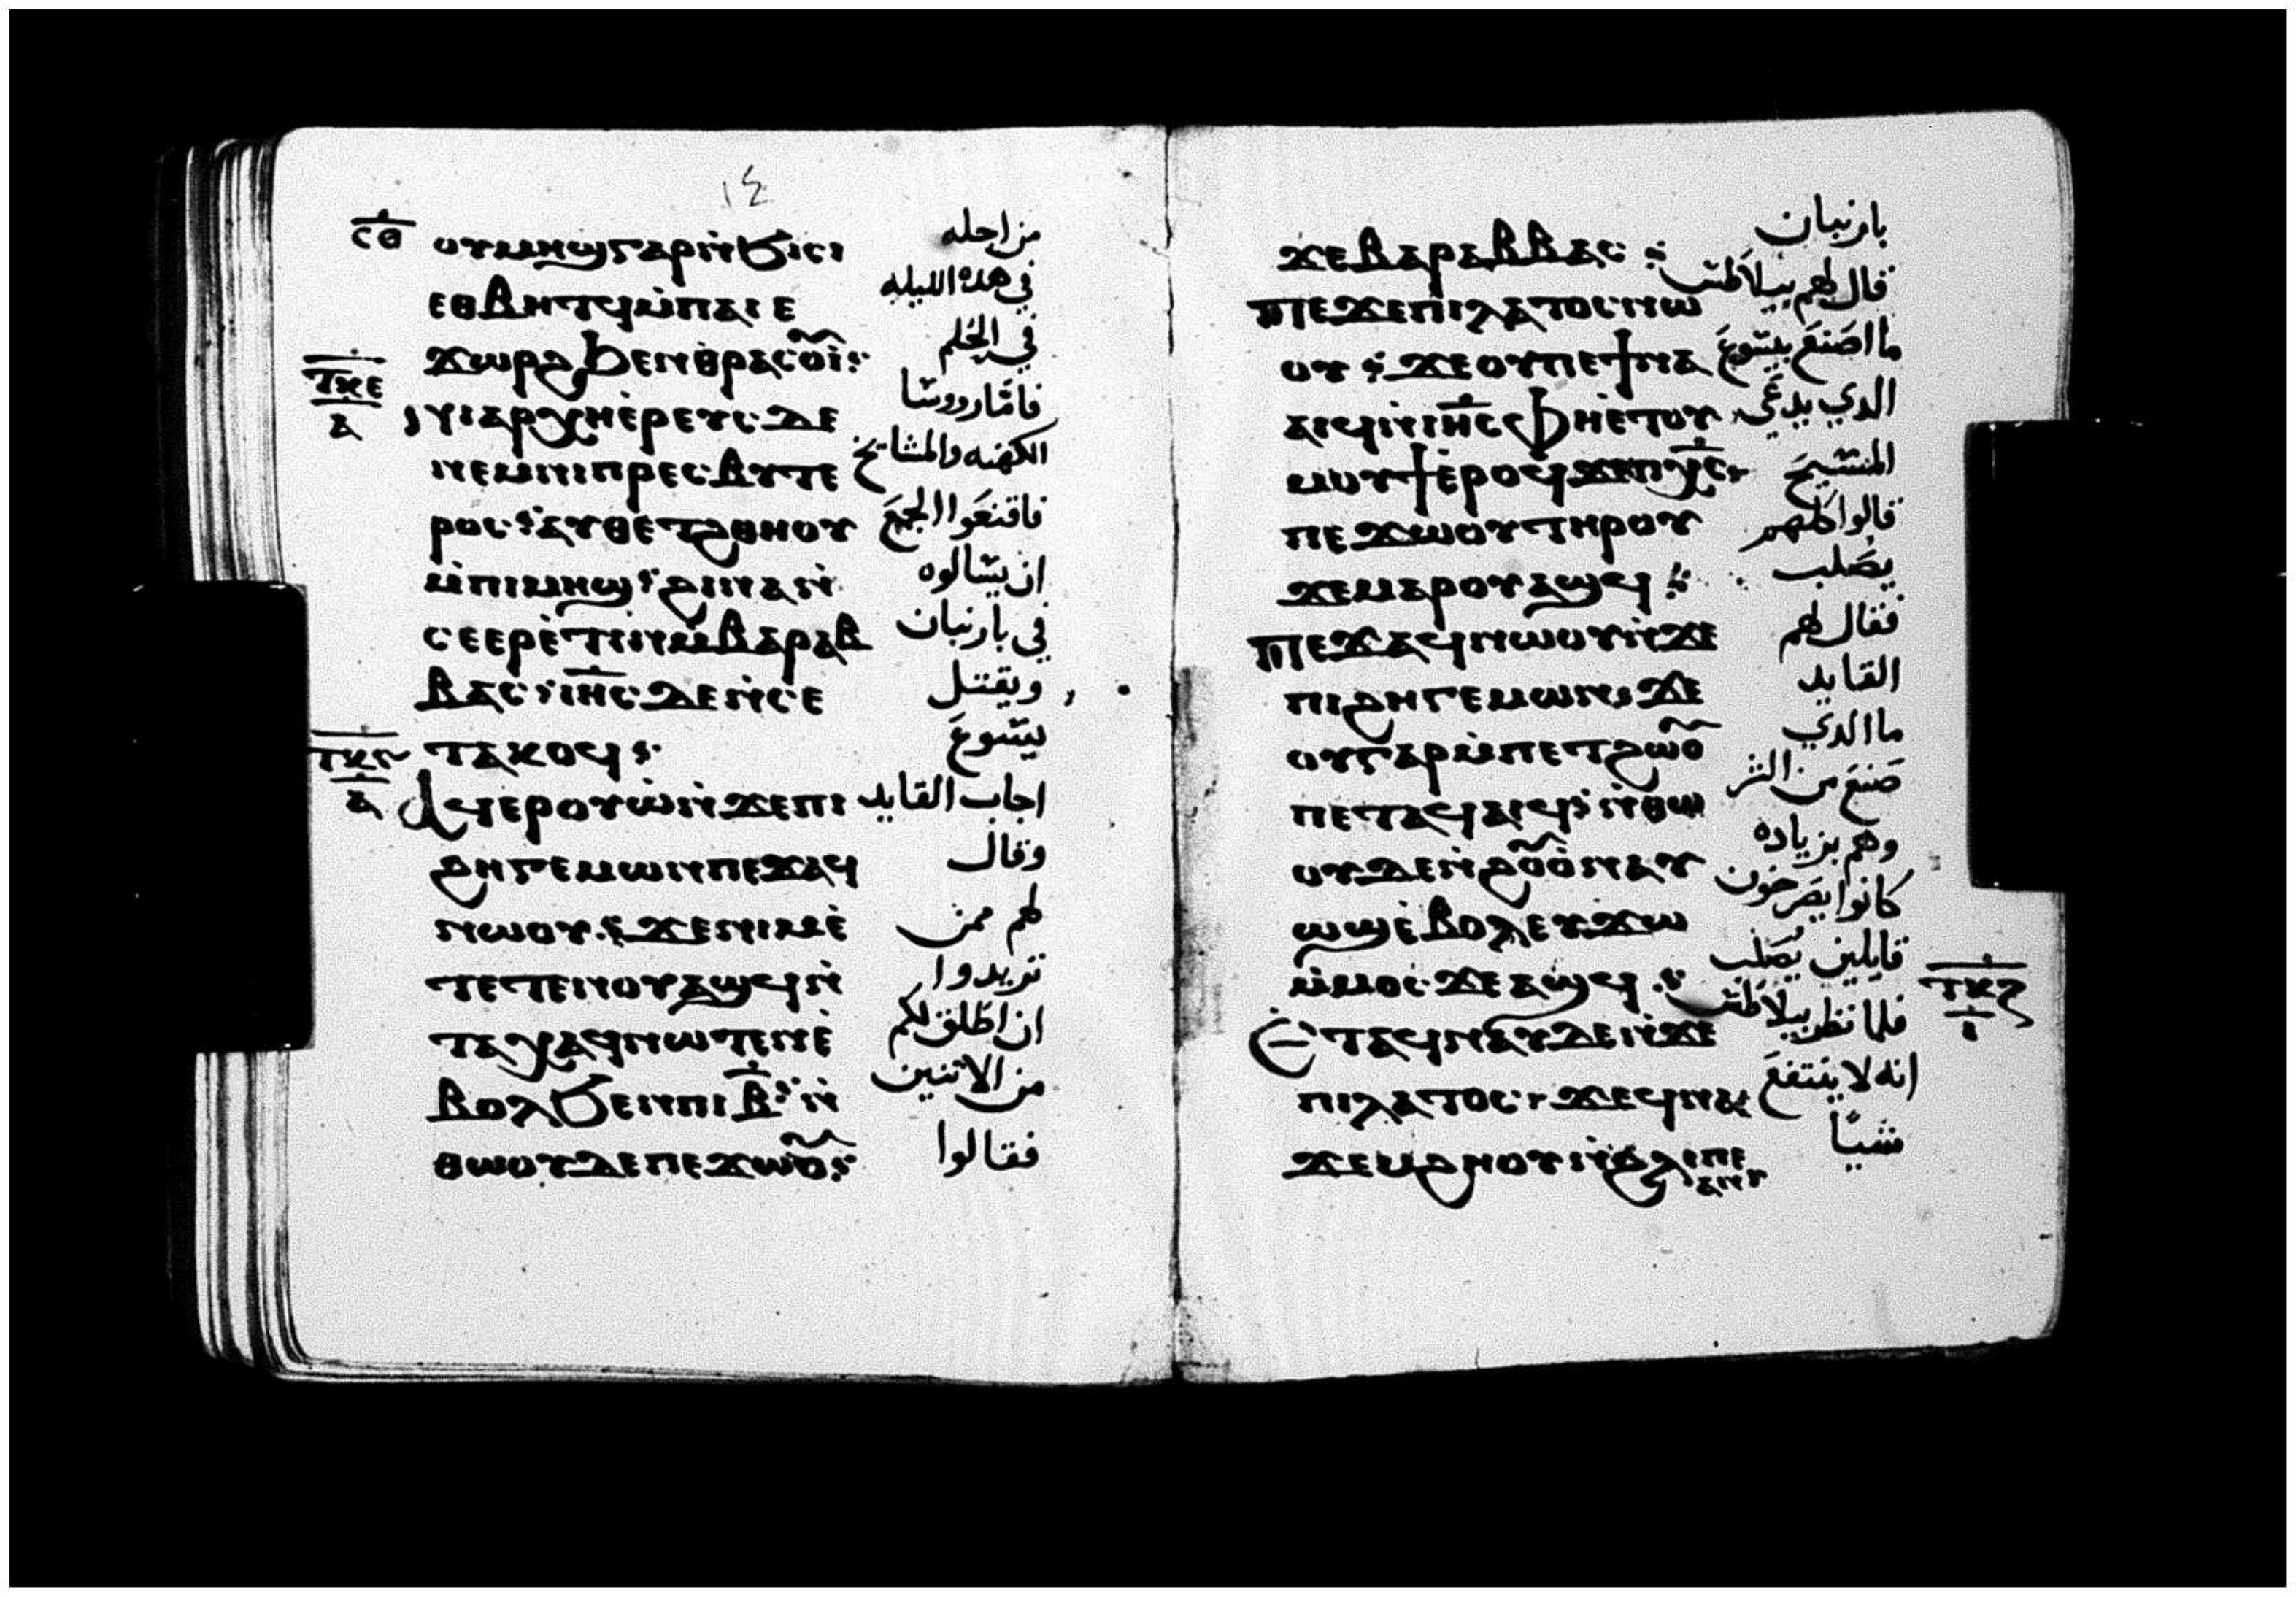 ١٤
ⲥ̅ⲑ̅ ⲟⲩⲙⲏϣⲅⲁⲣⲛ̀ϧⲓⲥⲓ من اجله
ⲉⲑⲃⲏⲧϥⲙ̀ⲡⲁⲓⲉ في هده الليله
ϫⲱⲣϩϦⲉⲛⲑⲣⲁⲥⲟⲩⲓ في الحُلم
ⲧ̅ⲕ̅ⲉ̅ ⲁ̅
ⲛⲓⲁⲣⲭⲏⲉ̀ⲣⲉⲩⲥⲇⲉ فامّا رووسا
ⲛⲉⲙⲛⲓⲡⲣⲉⲥⲃⲩⲧⲉ الكهنه والمشايخ
ⲣⲟⲥ ⲁⲩⲑⲉⲧϩⲑⲏⲟⲩ فاقنعَوا الجمعَ
ⲙ̀ⲡⲓⲙⲏϣ ϩⲓⲛⲁⲛ̀ ان يسالوه
ⲥⲉⲉⲣⲉ̀ⲧⲓⲛⲙ̀ⲃⲁⲣⲁⲃ في بارنبان
ⲃⲁⲥ ⲓⲏ̅ⲥ̅ ⲇⲉⲛ̀ⲥⲉ ويقتل
ⲧⲁⲕⲟϥ يسَوعَ
ⲁϥⲉⲣⲟⲩⲱ̀ⲛ̀ϫⲉⲡⲓ اجاب القايد
ϩⲏⲅⲉⲙⲱⲛⲡⲉϫⲁϥ وقال
ⲛⲱⲟⲩ ϫⲉⲛⲓⲙⲉ̀ لهم ممن
ⲧⲉⲧⲉⲛⲟⲩⲁϣϥⲛ̀ تريدوا
ⲧⲁⲭⲁϥⲛⲱⲧⲉⲛⲉ̀ ان اطلق لكم
ⲃⲟⲗϧⲉⲛⲡⲓⲃ̅ ⲛ̀ من الاتنين
ⲑⲱⲟⲩⲇⲉⲡⲉϫⲱⲟⲩ فقالوا
ϫⲉⲃⲁⲣⲁⲃⲃⲁⲥ بارنبان
ⲡⲉϫⲉⲡⲓⲗⲁⲧⲟⲥⲛⲱ قال لهم بيلاطس
ⲟⲩ ϫⲉⲟⲩⲡⲉϯⲛⲁ ما اصَنعَ بيسَوعَ
ⲁⲓϥⲛ̀ⲓⲏ̅ⲥ̅ⲫⲏⲉ̀ⲧⲟⲩ الدي يدعَي
ⲙⲟⲩϯⲉ̀ⲣⲟϥϫⲉⲡⲭ̅ⲥ̅ المسَيحَ
ⲡⲉϫⲱⲟⲩⲧⲏⲣⲟⲩ قالوا كلهم
ϫⲉⲙⲁⲣⲟⲩⲁϣϥ يصَلب
ⲡⲉϫⲁϥⲛⲱⲟⲩⲛ̀ϫⲉ فقال لهم
ⲡⲓϩⲏⲅⲉⲙⲱⲛ ϫⲉ القايد
ⲟⲩⲅⲁⲣⲙ̀ⲡⲉⲧϩⲱⲟⲩ ما الدي
ⲡⲉⲧⲁϥⲁⲓϥ ⲛ̀ⲑⲱ صَنعَ من الشر
ⲟⲩⲇⲉⲛ̀ϩⲟⲩⲟ̀ⲛⲁⲩ وهم بزياده
ⲱϣⲉ̀ⲃⲟⲗⲉⲩϫⲱ كانوا يصَرخون
ⲙ̀ⲙⲟⲥ ϫⲉⲁϣϥ قايلين يُصَلب
ⲉ̀ⲧⲁϥⲛⲁⲩⲇⲉⲛ̀ϫⲉ فلما نظر بيلاطس
ⲡⲓⲗⲁⲧⲟⲥ ϫⲉϥⲛⲁ انه لا ينتفعَ
ϫⲉⲙϩⲏⲟⲩⲛ̀ϩⲗⲓⲡⲉ ⲁⲛ شيًا